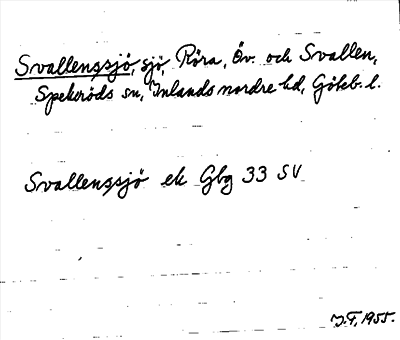 Svallenssjö, sjö, Röra, Öv. och Svallen,
Spekeröds sn, Inlands nordre hd, Göteb. l.
Svallenssjö ek Gbg 33 SV
J.F. 1955.